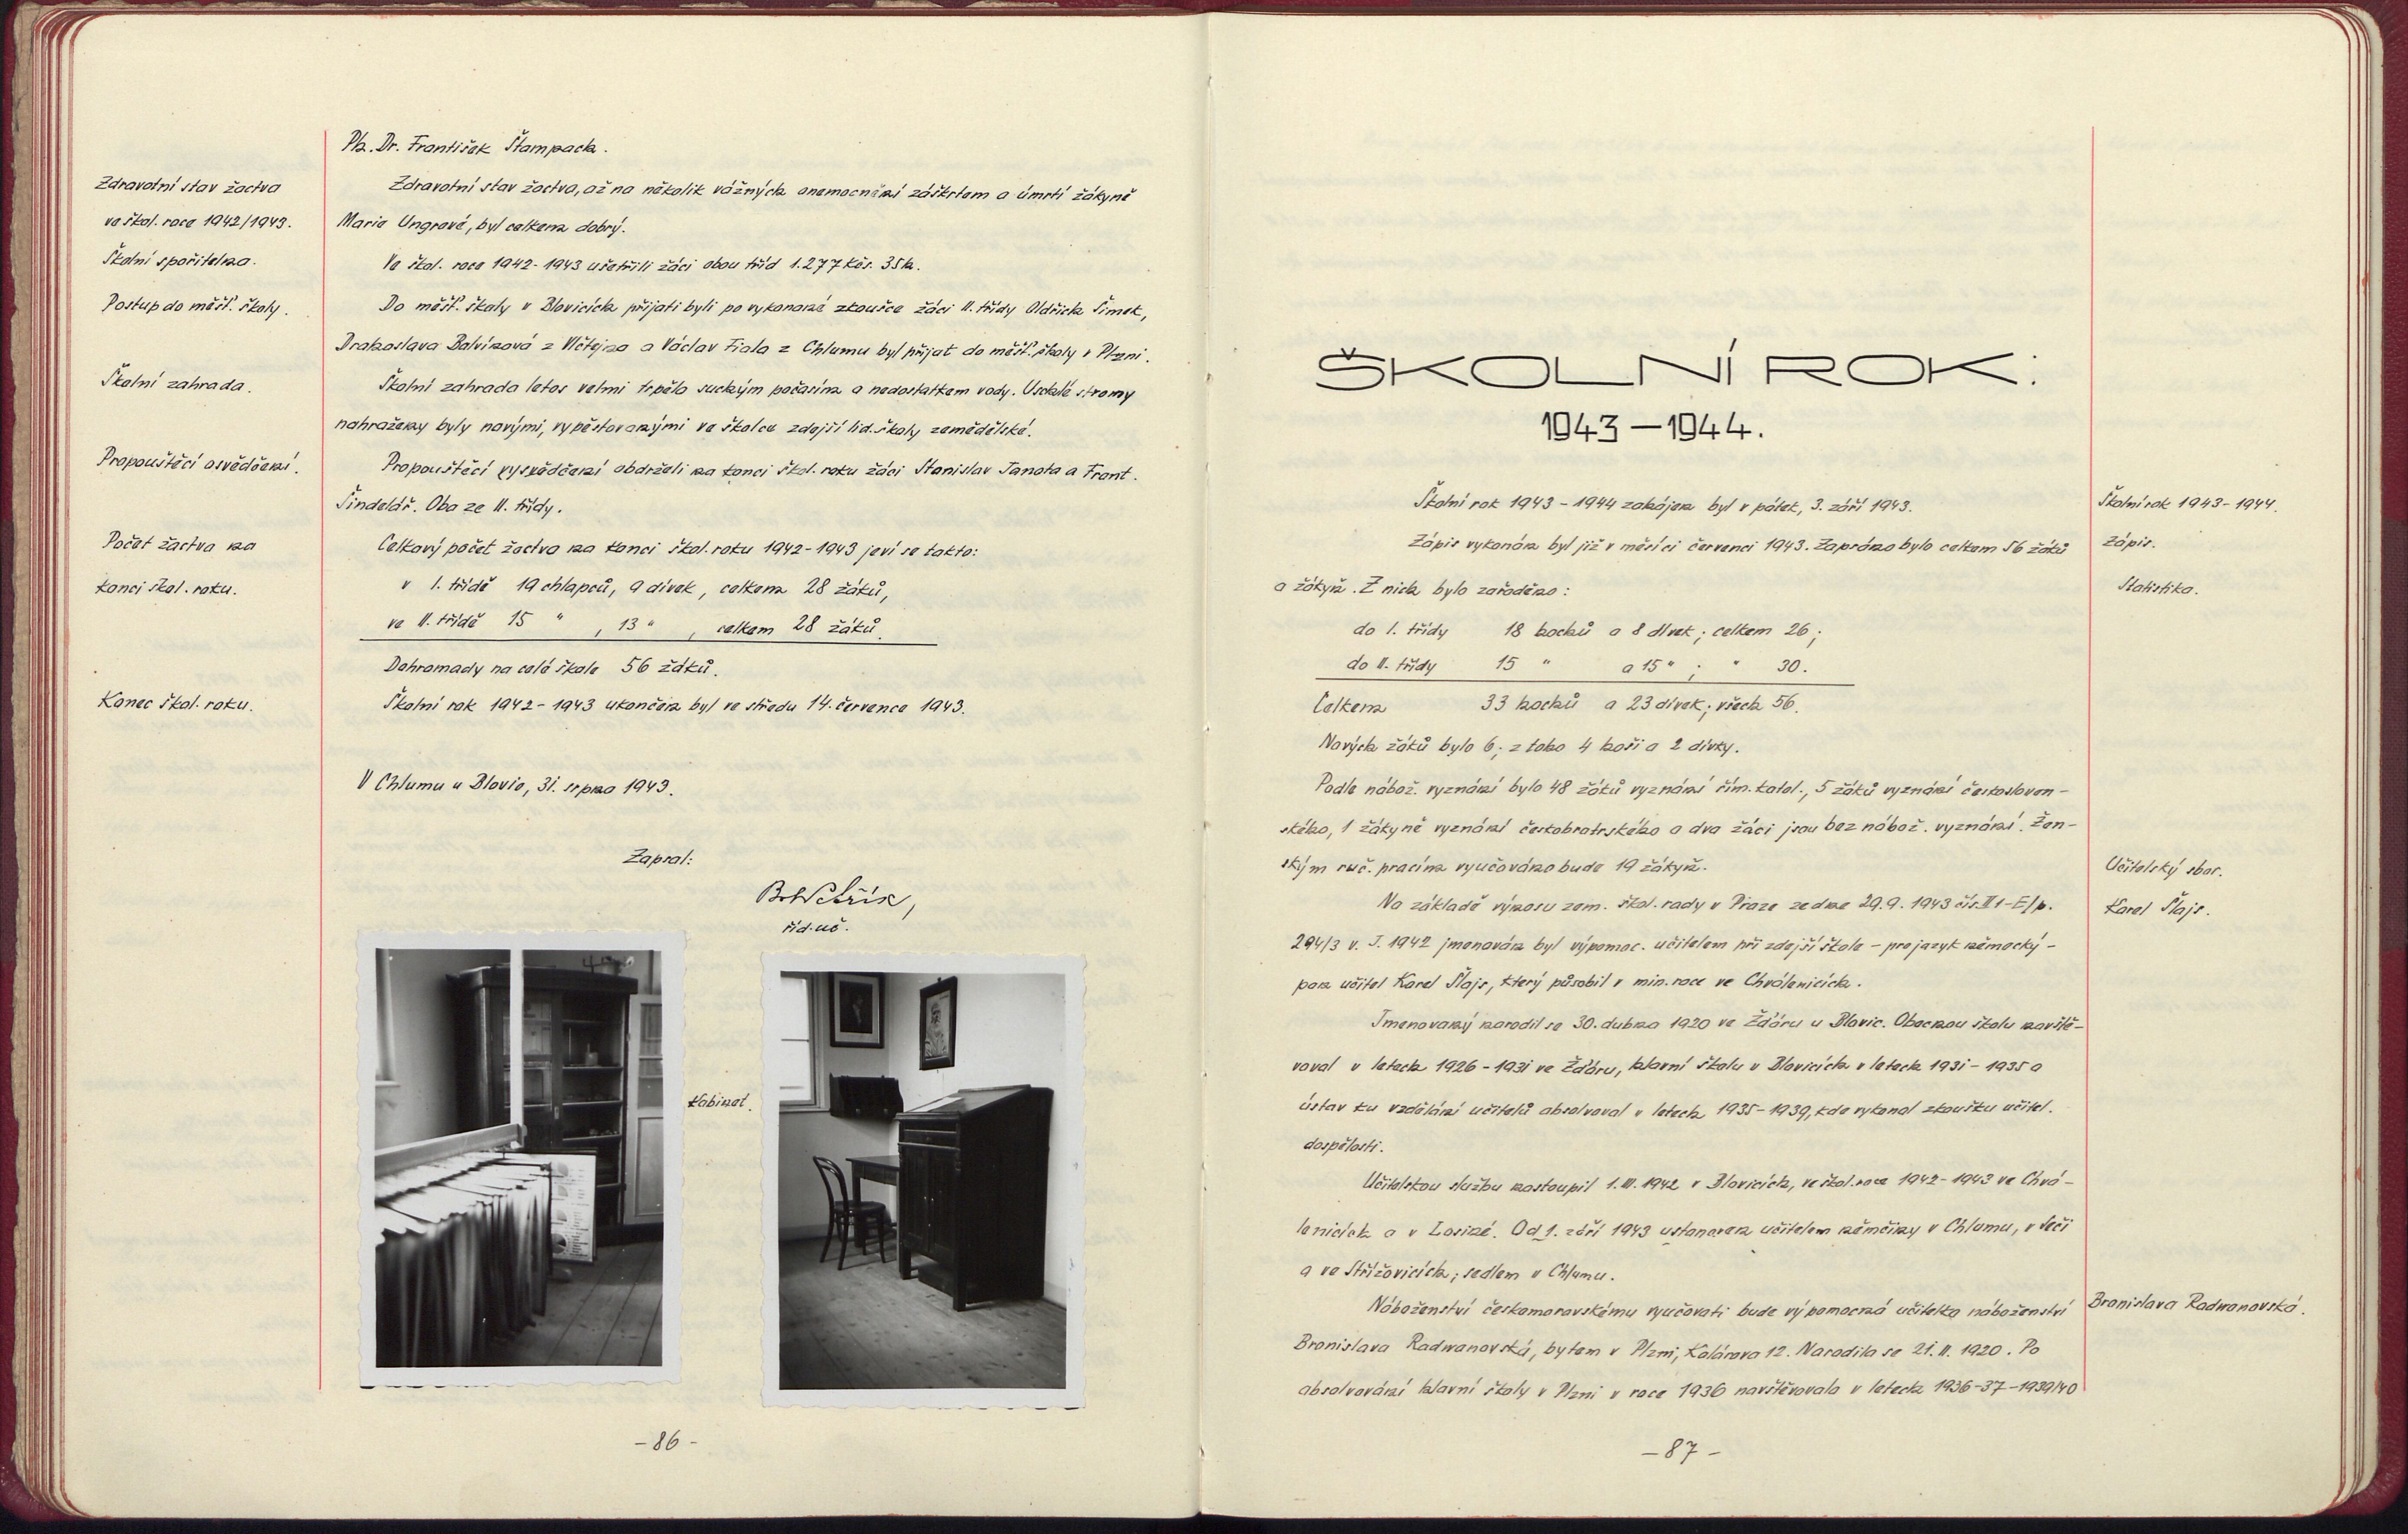 Ph. Dr. František Štampach.
Zdravotní stav žactva
ve škol. roce 1942/1943.
Zdravotní stav žactva, až na několik vážných onemocnění záškrtem a úmrtí žákyně
Marie Ungrové, byl celkem dobrý.
Školní spořitelna.
Ve škol. roce 1942-1943 ušetřili žáci obou tříd 1.277 Kčs. 35 h.
Postup do měšť. školy.
Do měšť. školy v Blovicích přijati byli po vykonané zkoušce žáci II. třídy Oldřich Šimek,
Drahoslava Balvínová z Vlčtejna a Václav Fiala z Chlumu byl přijat do měšť. školy v Plzni.
Školní zahrada.
Školní zahrada letos velmi trpěla suchým počasím a nedostatkem vody. Uschlé stromy
nahraženy byly novými, vypěstovanými ve školce zdejší lid. školy zemědělské.
Propouštěcí osvědčení.
Propouštěcí vysvědčení obdrželi na konci škol. roku žáci Stanislav Janota a Frant.
Šindelář. Oba ze II. třídy.
Počet žactva na
konci škol. roku.
Celkový počet žactva na konci škol. roku 1942-1943 jeví se takto:
v I. třídě 19 chlapců, 9 dívek, celkem 28 žáků,
ve II. třídě 15 " , 13 " , celkem 28 žáků.
Dohromady na celé škole 56 žáků.
Konec škol. roku.
Školní rok 1942-1943 ukončen byl ve středu 14. července 1943.
V Chlumu u Blovic, 31. srpna 1943.
Zapsal:
říd. uč.
Kabinet.
-86-
ŠKOLNÍ ROK:
1943-1944.
Školní rok 1943-1944 zahájen byl v pátek, 3. září 1943.
Školní rok 1943-1944.
Zápis vykonán byl již v měsíci červenci 1943. Zapsáno bylo celkem 56 žáků
Zápis.
a žákyň. Z nich bylo zařaděno:
Statistika.
do I. třídy 18 hochů a 8 dívek; celkem 26;
do II. třídy 15 " a 15 " ; " 30.
Celkem 33 hochů a 23 dívek; všech 56.
Nových žáků bylo 6; z toho 4 hoši a 2 dívky.
Podle nábož. vyznání bylo 48 žáků vyznání řím. katol., 5 žáků vyznání českosloven-
ského, 1 žákyně vyznání českobratrského a dva žáci jsou bez nábož. vyznání. Žen-
ským ruč. pracím vyučováno bude 19 žákyň.
Učitelský sbor.
Na základě výnosu zem. škol. rady v Praze ze dne 29.9. 1943 čís. II 1-E/p.
Karel Šlajs.
294/3 v. J. 1942 jmenován byl výpomoc. učitelem při zdejší škole - pro jazyk německý -
pan učitel Karel Šlajs, který působil v min. roce ve Chválenicích.
Jmenovaný narodil se 30. dubna 1920 ve Žďáru u Blovic. Obecnou školu navště-
voval v letech 1926-1931 ve Žďáru, hlavní školu v Blovicích v letech 1931-1935 a
ústav ku vzdělání učitelů absolvoval v letech 1935-1939, kde vykonal zkoušku učitel.
dospělosti.
Učitelskou službu nastoupil 1. III. 1942 v Blovicích, ve škol. roce 1942-1943 ve Chvá-
lenicích a v Losiné. Od 1. září 1943 ustanoven učitelem němčiny v Chlumu, v Seči
a ve Střížovicích; sedlem v Chlumu.
Náboženství českomoravskému vyučovati bude výpomocná učitelka náboženství
Bronislava Radwanovská.
Bronislava Radwanovská, bytem v Plzni, Kolárova 12. Narodila se 21. II. 1920. Po
absolvování hlavní školy v Plzni v roce 1936 navštěvovala v letech 1936-37-1939/40
-87-